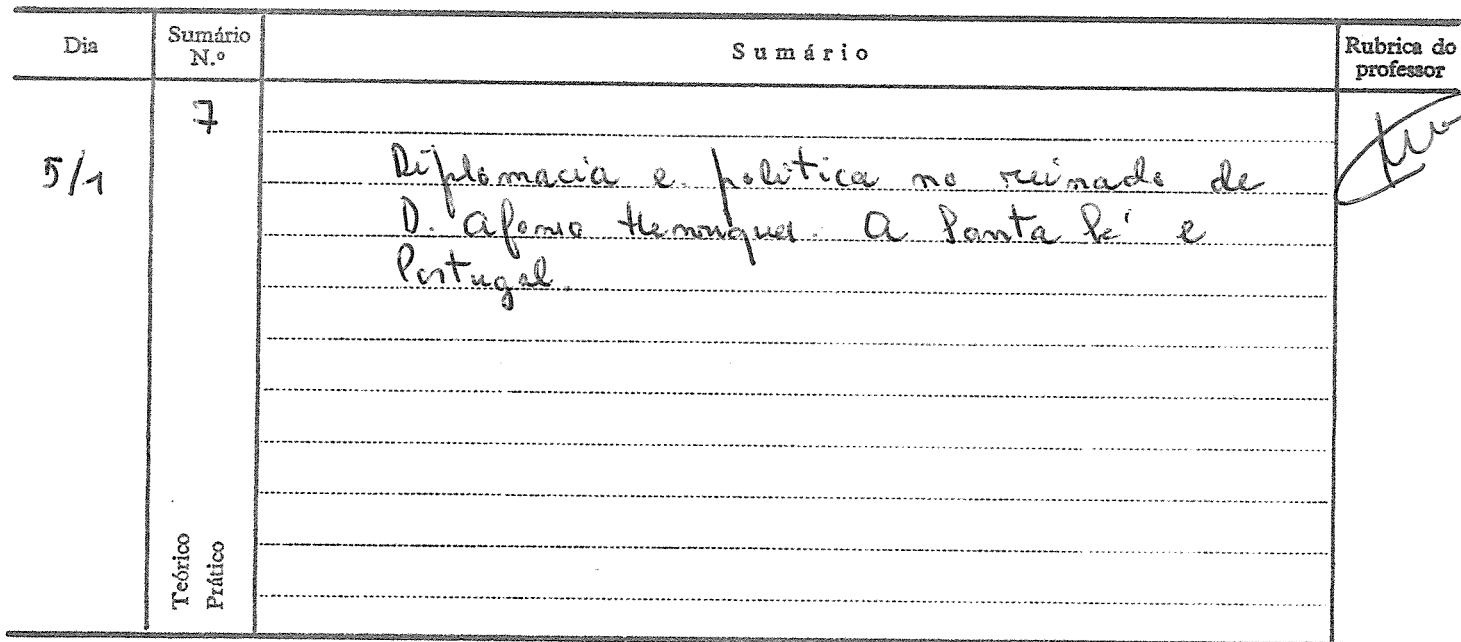 Dia
Sumário N.º
Sumário
Rubrica do professor
7
5/1
Diplomacia e politica no reinado de
D. Afonso Henriques. A Santa Sé e
Portugal.
Teórico
Prático